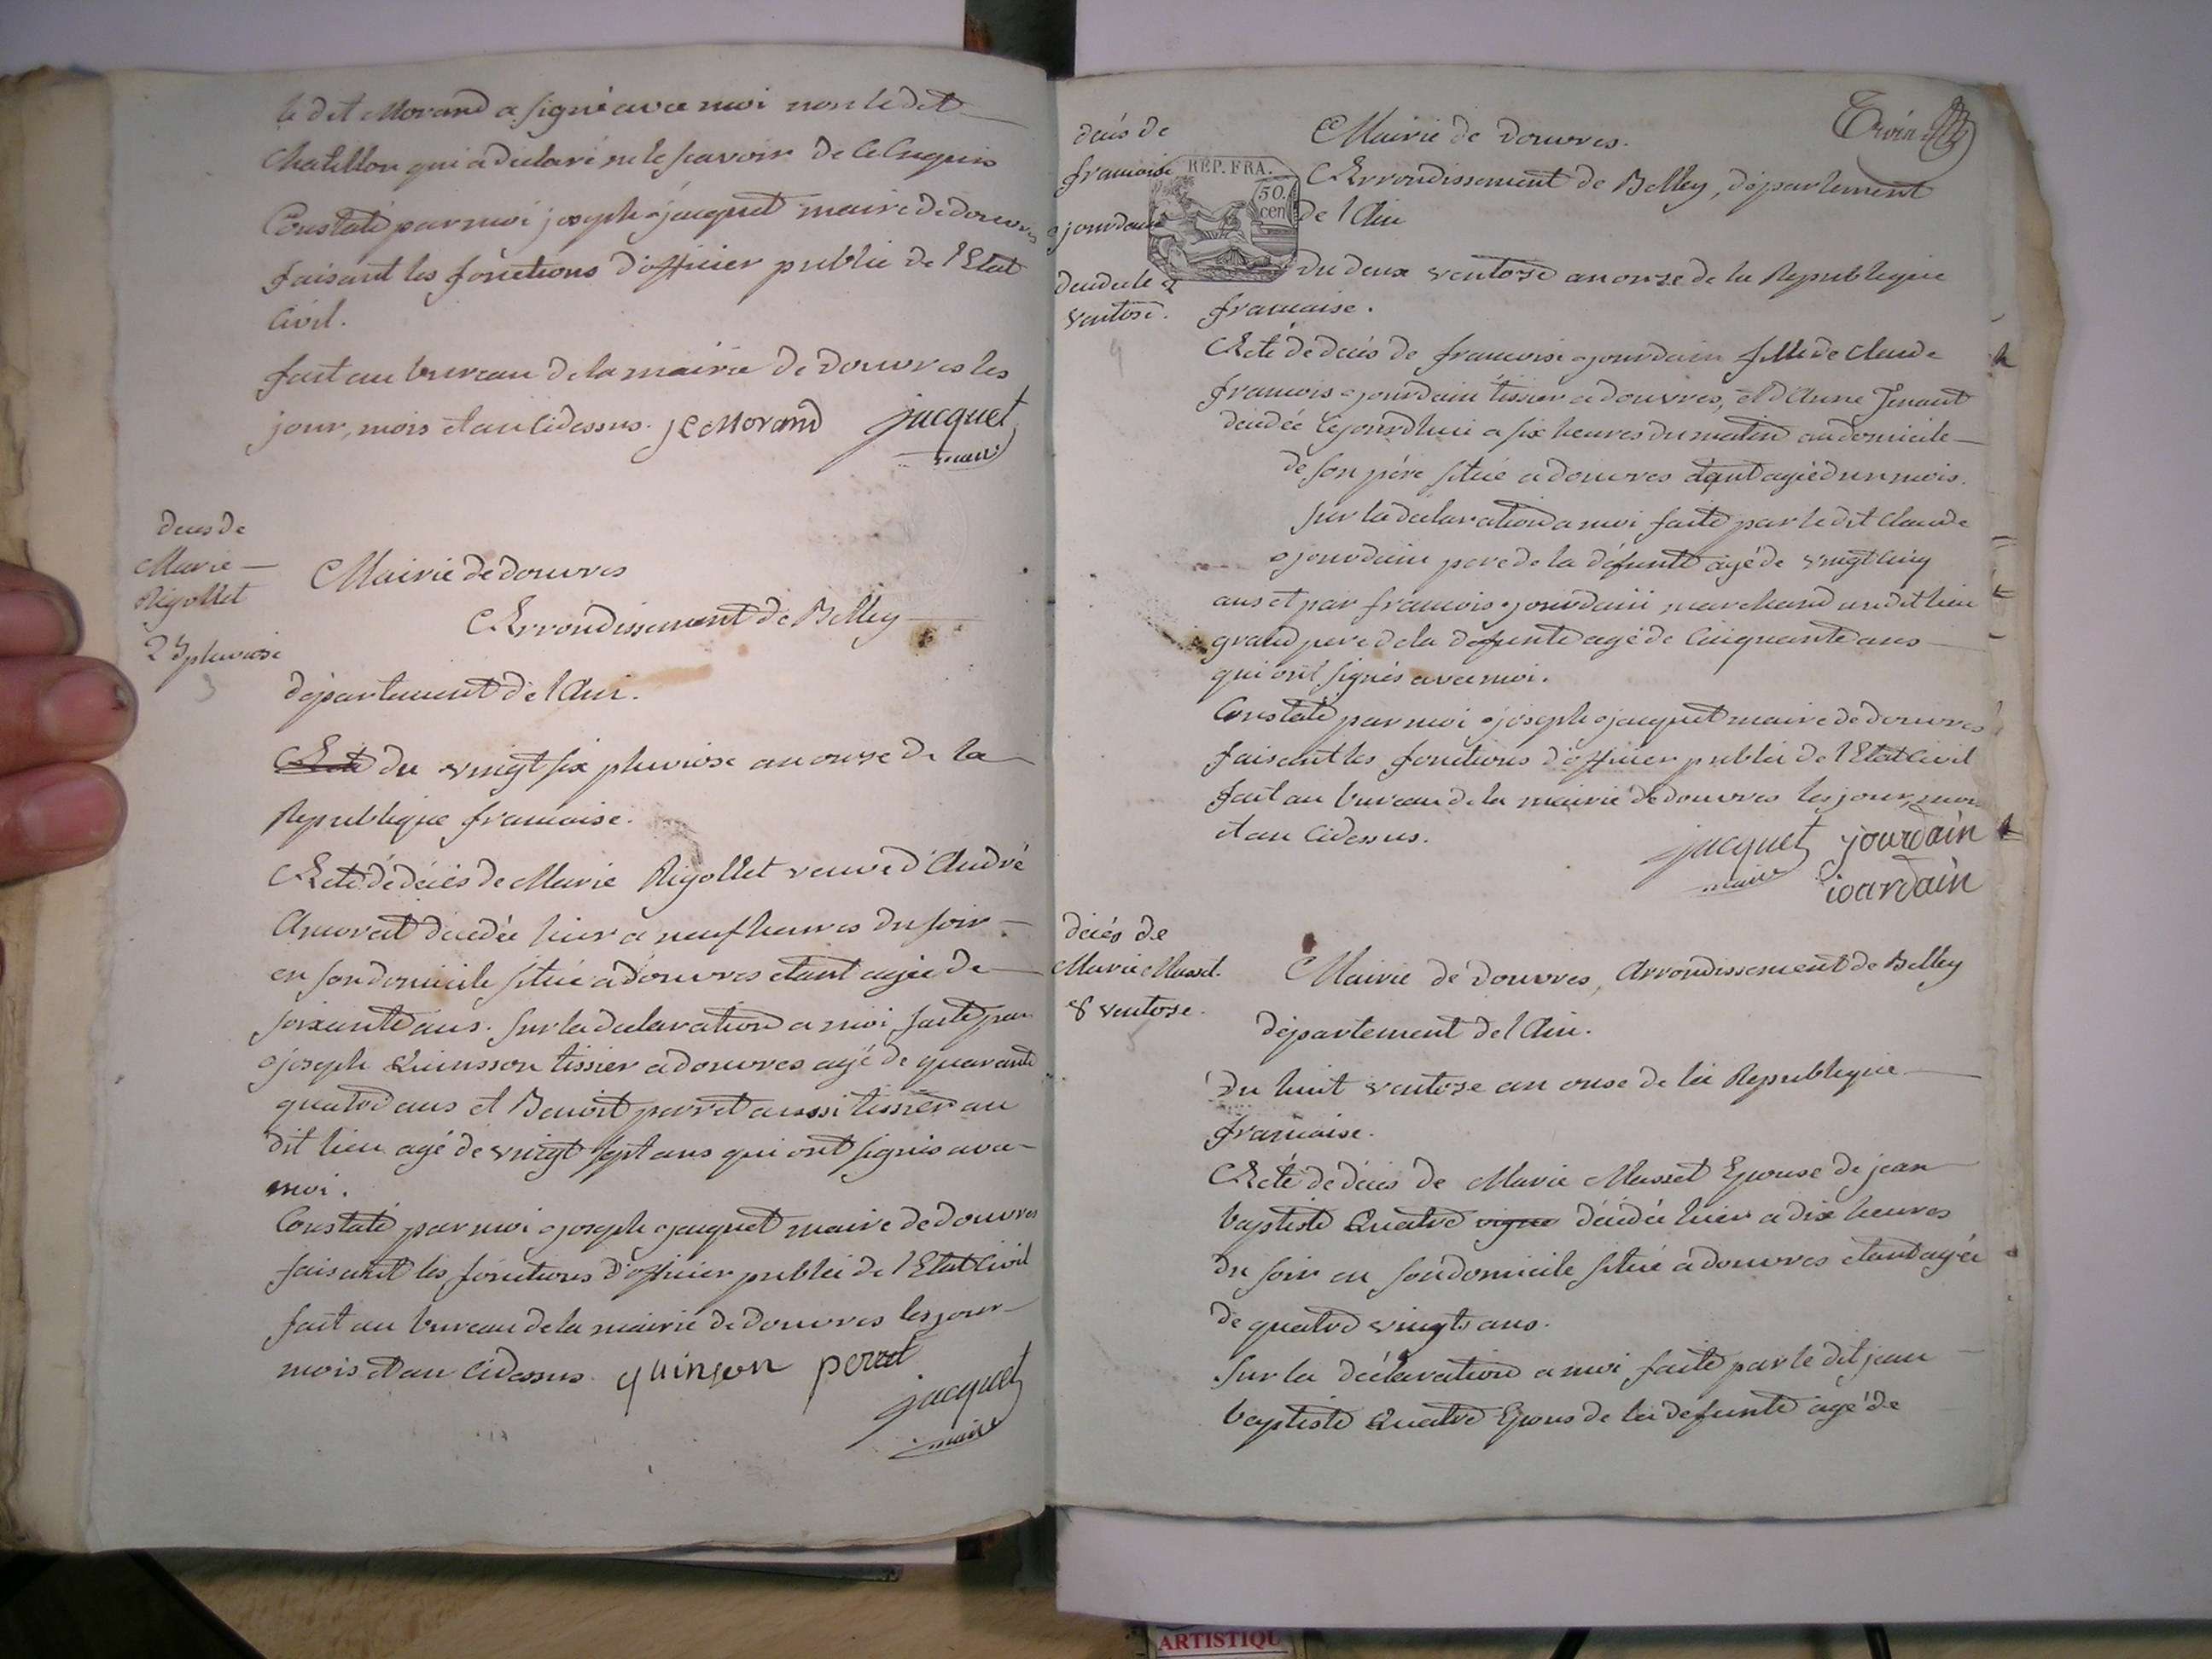 le dit Morand a signé avec moi non le dit
Chatillon qui a declaré ne le scavoir de ce enquis
Constaté par moi joseph jacquet maire de douvres
faisant les fonctions d'officier public de l'Etat
Civil.
fait au bureau de la mairie de douvres les
jour, mois et an cidessus. Morand jacquet
maire
deces de
Marie
Rigollet
pluviose
3
Mairie de douvres
Arrondissement de Belley
département de l'Ain.
Acte du vingt six pluviose an onze de la
Republique francaise.
Acte de décès de Marie Rigollet veuve d'André
décédée hier a neuf heures du soir
en son domicile situé a douvres etant agée de
soixante ans. Sur la declaration a moi faite par
joseph Quinsson tissier a douvres agé de quarante
quatre ans et Benoit perret aussi tissier au
dit lieu agé de vingt sept ans qui ont signés avec
moi.
Constaté par moi joseph jacquet maire de douvres
faisant les fonctions d'officier public de l'Etat Civil
fait au bureau de la mairie de douvres les jour
mois et an cidessus. quinson perret
jacquet
maire
décés de
francoise
jourdain
du
ventose.
REP. FRA.
50.
cen
Mairie de douvres.
Arrondissement de Belley, département
de l'Ain
Du deux ventose an onze de la Republique
francaise.
Acte de decés de francoise jourdain fille de Claude
francois jourdain tissier a douvres, et d'Anne
décédée cejourdhui a six heures du matin au domicile
de son père situé a douvres etant agée d'un mois.
Sur la declaration a moi faite par le dit Claude
jourdain pere de la défunte agé de vingt cinq
ans et par francois jourdain marchand au dit lieu
grand pere de la defunte agé de cinquante ans
qui ont signés avec moi.
Constaté par moi joseph jacquet maire de douvres
faisant les fonctions d'officier public de l'Etat Civil
fait au bureau de la mairie de douvres les jour, mois
et an cidessus.
jacquet jourdain
maire iourdain
décés de
Marie Musset.
8 ventose.
5
Mairie de douvres, Arrondissement de Belley
département de l'Ain.
Du huit ventose an onze de la Republique
francaise.
Acte de décès de Marie Musset Epouse de jean
baptiste Quatre vigne décédée hier a dix heures
du soir en son domicile situé a douvres etant agée
de quatre vingts ans.
Sur la déclaration a moi faite par le dit jean
baptiste Quatre Epoux de la defunte agé de
ARTISTIQU